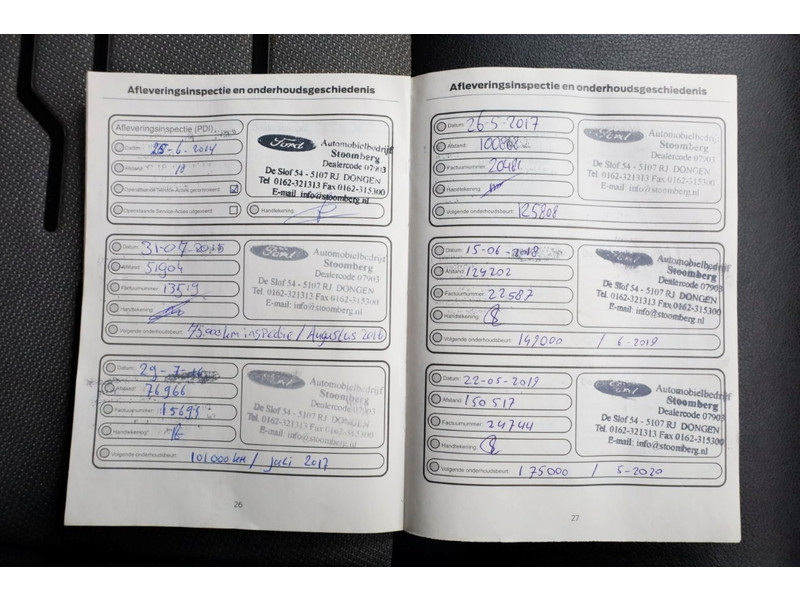 Afleveringsinspectie en onderhoudsgeschiedenis
Afleveringsinspectie (PDI)
Datum: 25-6-2014
Afstand: 18
Openstaande Service Acties gecontroleerd
Openstaande Service Acties uitgevoerd
Handtekening:
Ford
Automobielbedrijf
Stoomberg
Dealercode 07903
De Slof 54 - 5107 RJ DONGEN
Tel 0162-321313 Fax 0162-315300
E-mail: info@stoomberg.nl
Datum: 31-07-2015
Afstand: 51904
Factuurnummer: 13519
Handtekening:
Volgende onderhoudsbeurt: 75.000 km inspectie / Augustus 2016
Ford
Automobielbedrijf
Stoomberg
Dealercode 07903
De Slof 54 - 5107 RJ DONGEN
Tel. 0162-321313 Fax 0162-315300
E-mail: info@stoomberg.nl
Datum: 29-7-16
Afstand: 76966
Factuurnummer: 15693
Handtekening:
Volgende onderhoudsbeurt: 101.000 km / juli 2017
Ford
Automobielbedrijf
Stoomberg
Dealercode 07903
De Slof 54 - 5107 RJ DONGEN
Tel. 0162-321313 Fax 0162-315300
E-mail: info@stoomberg.nl
26
Afleveringsinspectie en onderhoudsgeschiedenis
Datum: 26-5-2017
Afstand:
Factuurnummer:
Handtekening:
Volgende onderhoudsbeurt: 125808
Ford
Automobielbedrijf
Stoomberg
Dealercode 07903
De Slof 54 - 5107 RJ DONGEN
Tel. 0162-321313 Fax 0162-315300
E-mail: info@stoomberg.nl
Datum: 15-06-2018
Afstand: 124202
Factuurnummer: 22587
Handtekening:
Volgende onderhoudsbeurt: 149000 / 6-2019
Ford
Automobielbedrijf
Stoomberg
Dealercode 07903
De Slof 54 - 5107 RJ DONGEN
Tel. 0162-321313 Fax 0162-315300
E-mail: info@stoomberg.nl
Datum: 22-05-2019
Afstand: 150517
Factuurnummer: 24744
Handtekening:
Volgende onderhoudsbeurt: 175000 / 5-2020
Ford
Automobielbedrijf
Stoomberg
Dealercode 07903
De Slof 54 - 5107 RJ DONGEN
Tel. 0162-321313 Fax 0162-315300
E-mail: info@stoomberg.nl
27